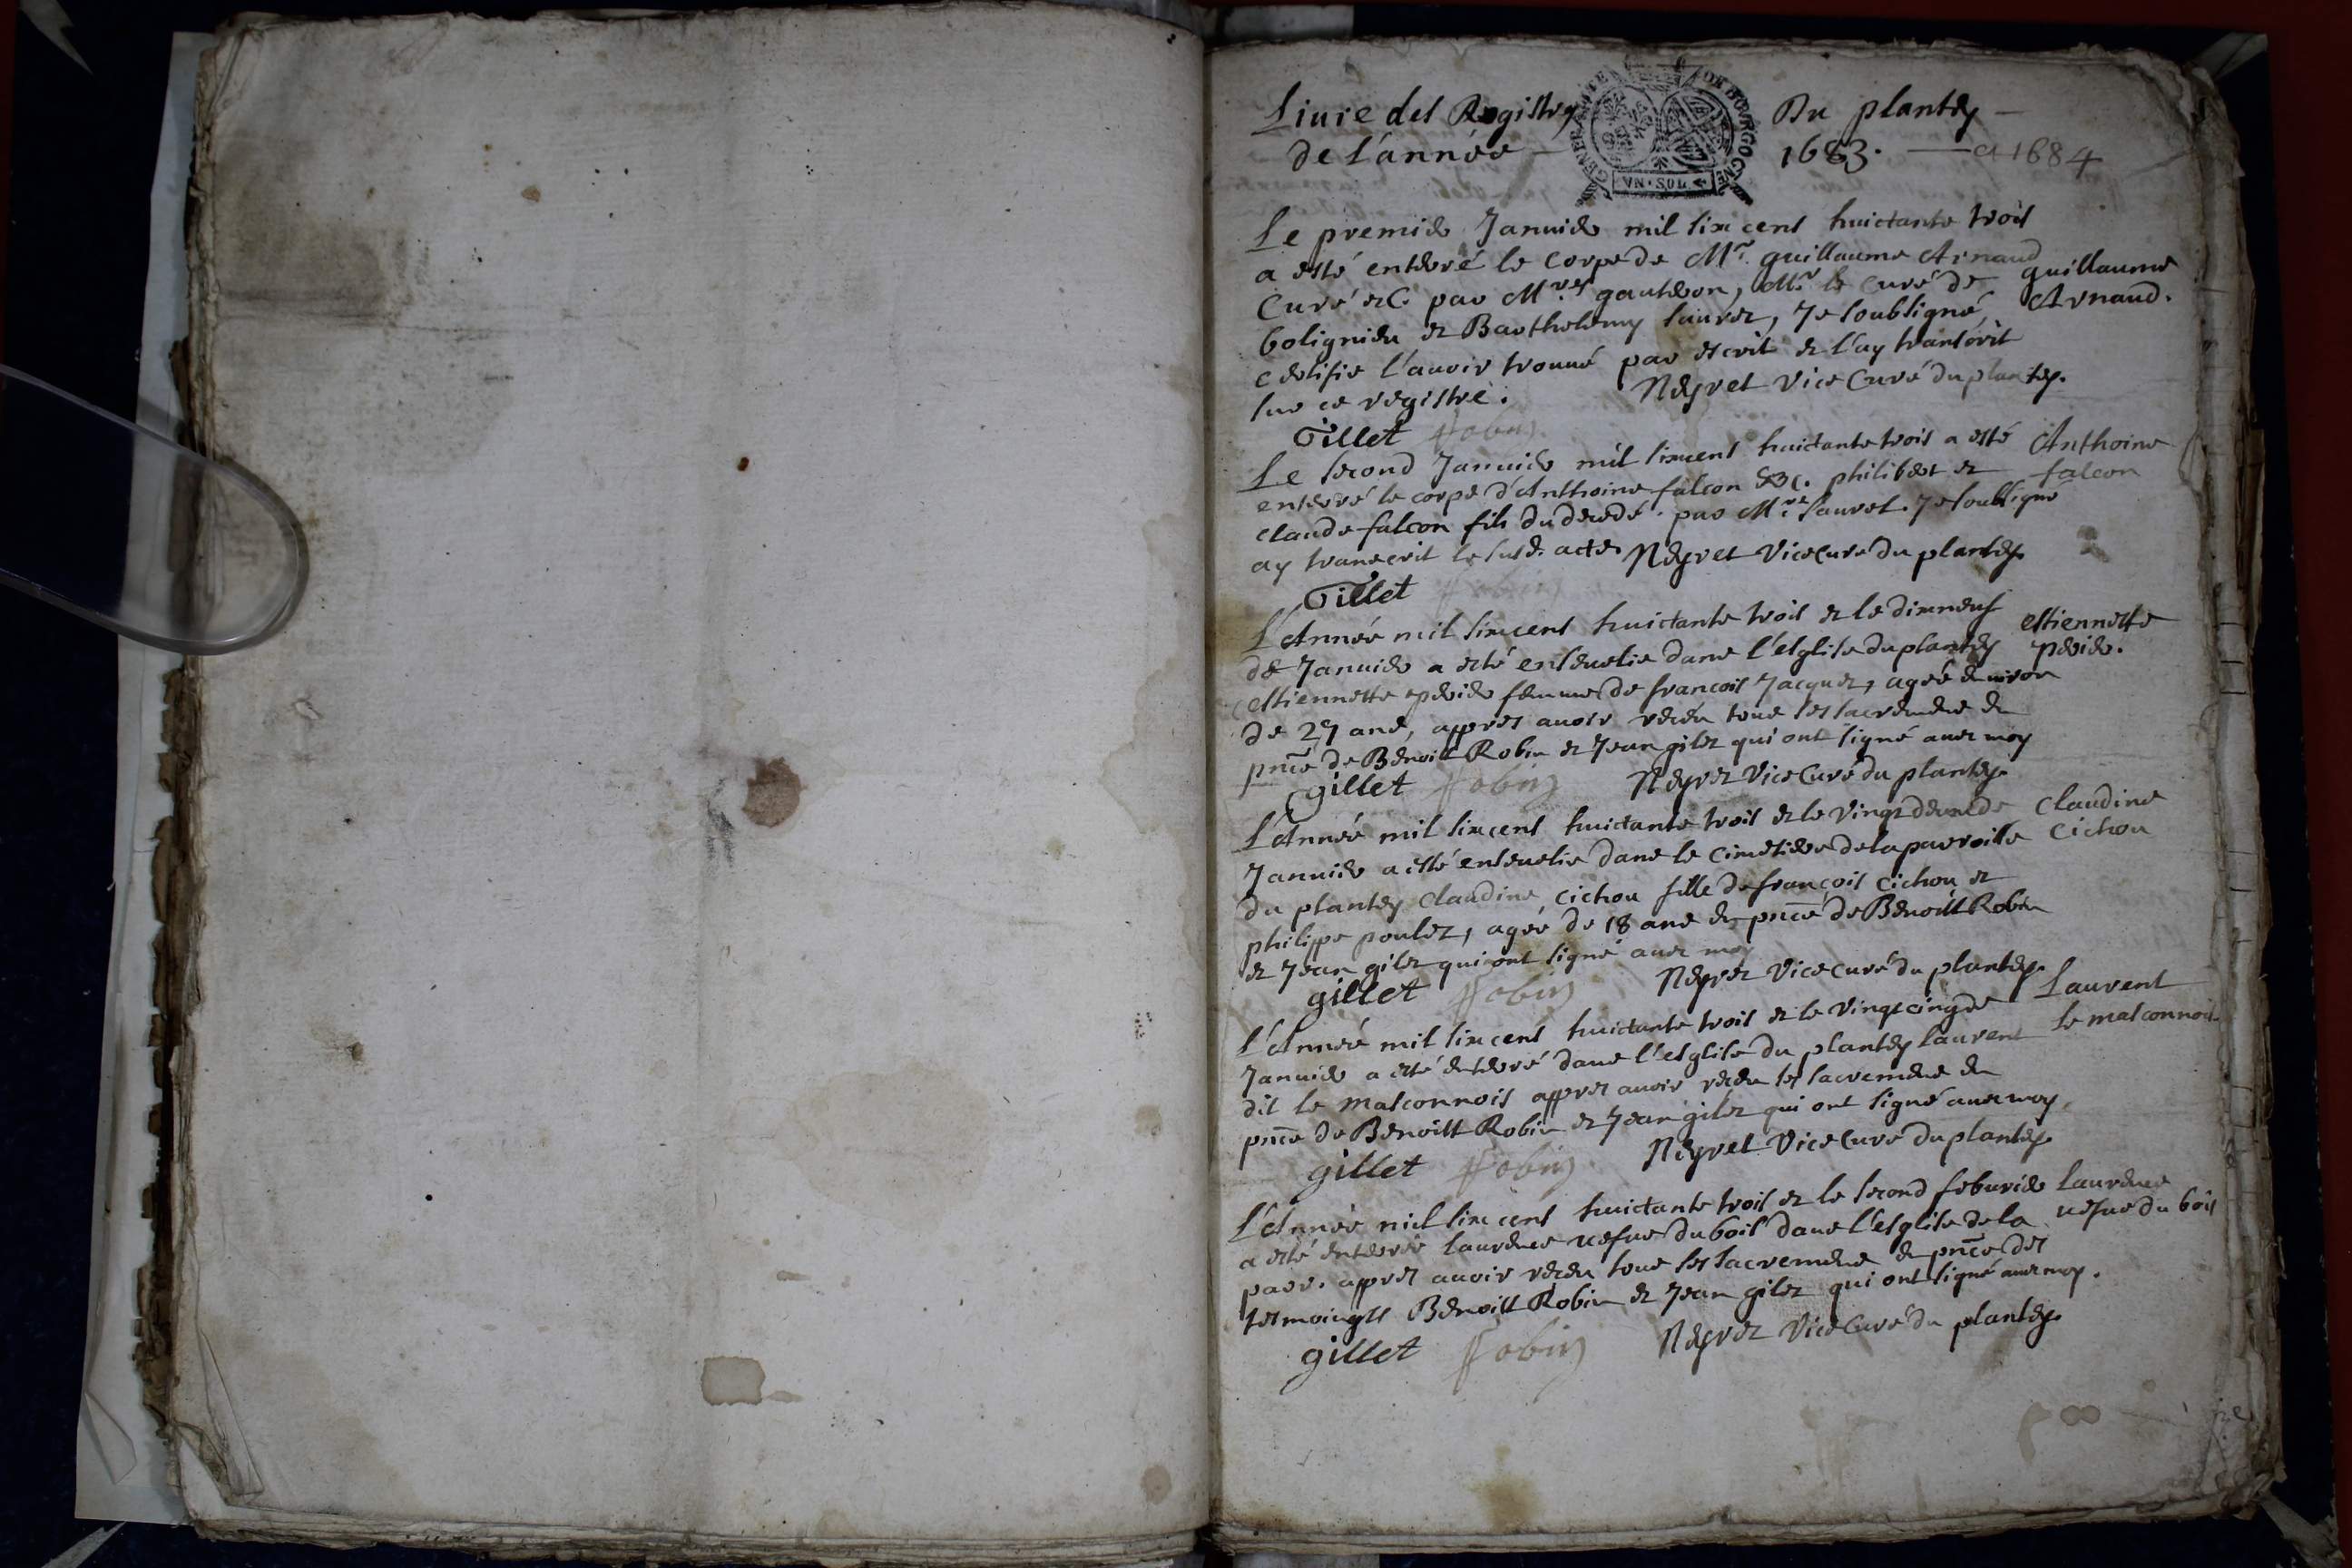 Liure des Registres Du plantey
de l'année 1683. et 1684
GENERALITE DE BOURGOGNE
VN·SOL
Le premier Januier mil six cens huictante trois
a esté enterré le corps de Mr. guillaume Arnaud
Curé &c. par Mres gauteron, Mr. le Curé de guillaume
bolignieu et Barthelemy sauret, Je soubsigné, Arnaud.
certifie l'auoir trouué par escrit et l'ay transcrit
sur ce registre. Neyret Vice Curé du plantey.
Gillet Robin
Le second Januier mil six cens huictante trois a esté Anthoine
enterré le corps d'Anthoine falcon &c. philibert et falcon
claude falcon fils du decedé par Mre sauret. Je soubsigné
ay transcrit le susd. acte. Neyret Vice Curé du plantey
Gillet Robin
L'Année mil six cens huictante trois et le dixneuf
de Januier a esté enseuelie dans l'esglise du plantey estiennette
estiennette perier femme de francois Jacquet, agée enuiron perier.
de 27 ans, appres auoir receu tous ses sacremens en
pnce de Benoist Robin et Jean gilet qui ont signé auec moy
gillet Robin Neyret Vice Curé du plantey.
L'Année mil six cens huictante trois et le Vingtdeux de Claudine
Januier a esté enseuelie dans le cimetiere de la parroisse Cichou
du plantey Claudine Cichou fille de françois Cichou et
philippe poulet, agée de 18 ans en pnce de Benoist Robin
et Jean gilet qui ont signé auec moy
gillet Robin Neyret Vice curé du plantey.
L'Année mil six cens huictante trois et le Vingtcinq de Laurent
Januier a esté enterré dans l'esglise du plantey laurent le masconnois
dit le masconnois appres auoir receu ses sacremens en
pnce de Benoist Robin et Jean gilet qui ont signé auec moy.
gillet Robin Neyret Vice Curé du plantey.
L'Année mil six cens huictante trois et le second feburier laurence
a esté enterrée laurence uefue du bois dans l'esglise de la uefue du bois
parr. appres auoir receu tous ses sacremens en pnce des
tesmoingts Benoist Robin et Jean gilet qui ont signé auec moy.
gillet Robin Neyret Vice Curé du plantey.